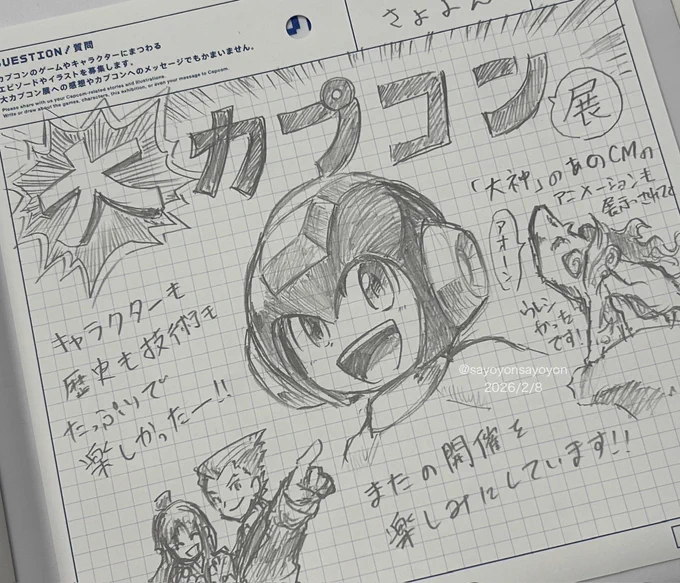 QUESTION / 質問
カプコンのゲームやキャラクターにまつわる
エピソードやイラストを募集します。
大カプコン展への感想やカプコンへのメッセージでもかまいません。
Please share with us your Capcom-related stories and illustrations.
Write or draw about the games, characters, this exhibition, or even your message to Capcom.
さよよん
大カプコン展
「大神」のあのCMの
アニメーションも
展示されてて
アオーン
ウレシ
かった
です!
キャラクターも
歴史も技術も
たっぷりで
楽しかったー!!
@sayoyonsayoyon
2026/2/8
またの開催を
楽しみにしています!!